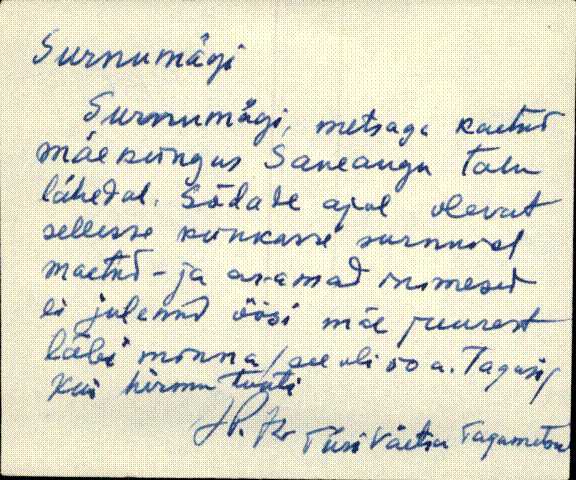 Surnumägi
Surnumägi, metsaga kaetud
mäeküngas Saueaugu talu
lähedal. Sõdade ajal olevat
sellesse künkasse surnuid
maetud - ja aramad inimesed
ei julenud öösi mäe juurest
läbi minna / see oli 50 a. Tagasi /
Kui hirmu tunti
Türi Väetsa Tagametsa